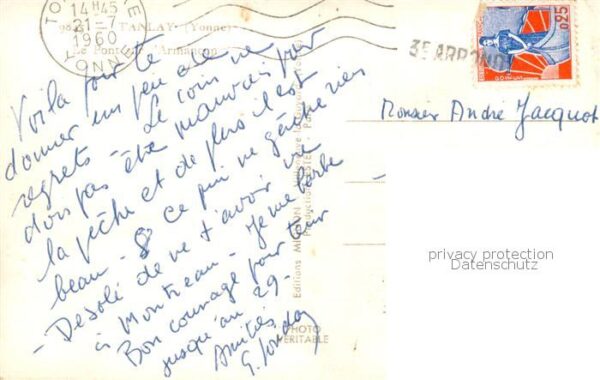 14H45
21-7
1960
YONNE
TANLAY (Yonne)
Le Pont de l'Armançon
0,25
3E ARROND
Voilà pour te
donner un peu de
regrets - Le coin ne
dois pas être mauvais pour
la pêche et de plus il est
beau - & ce qui ne gâche rien
- Desolé de ne t'avoir vu
à Montceau - Je me barbe
Bon courage pour tenir
jusqu'au 29 -
Amitiés
Monsieur André Jacquot
Editions
PHOTO
VERITABLE
privacy protection
Datenschutz